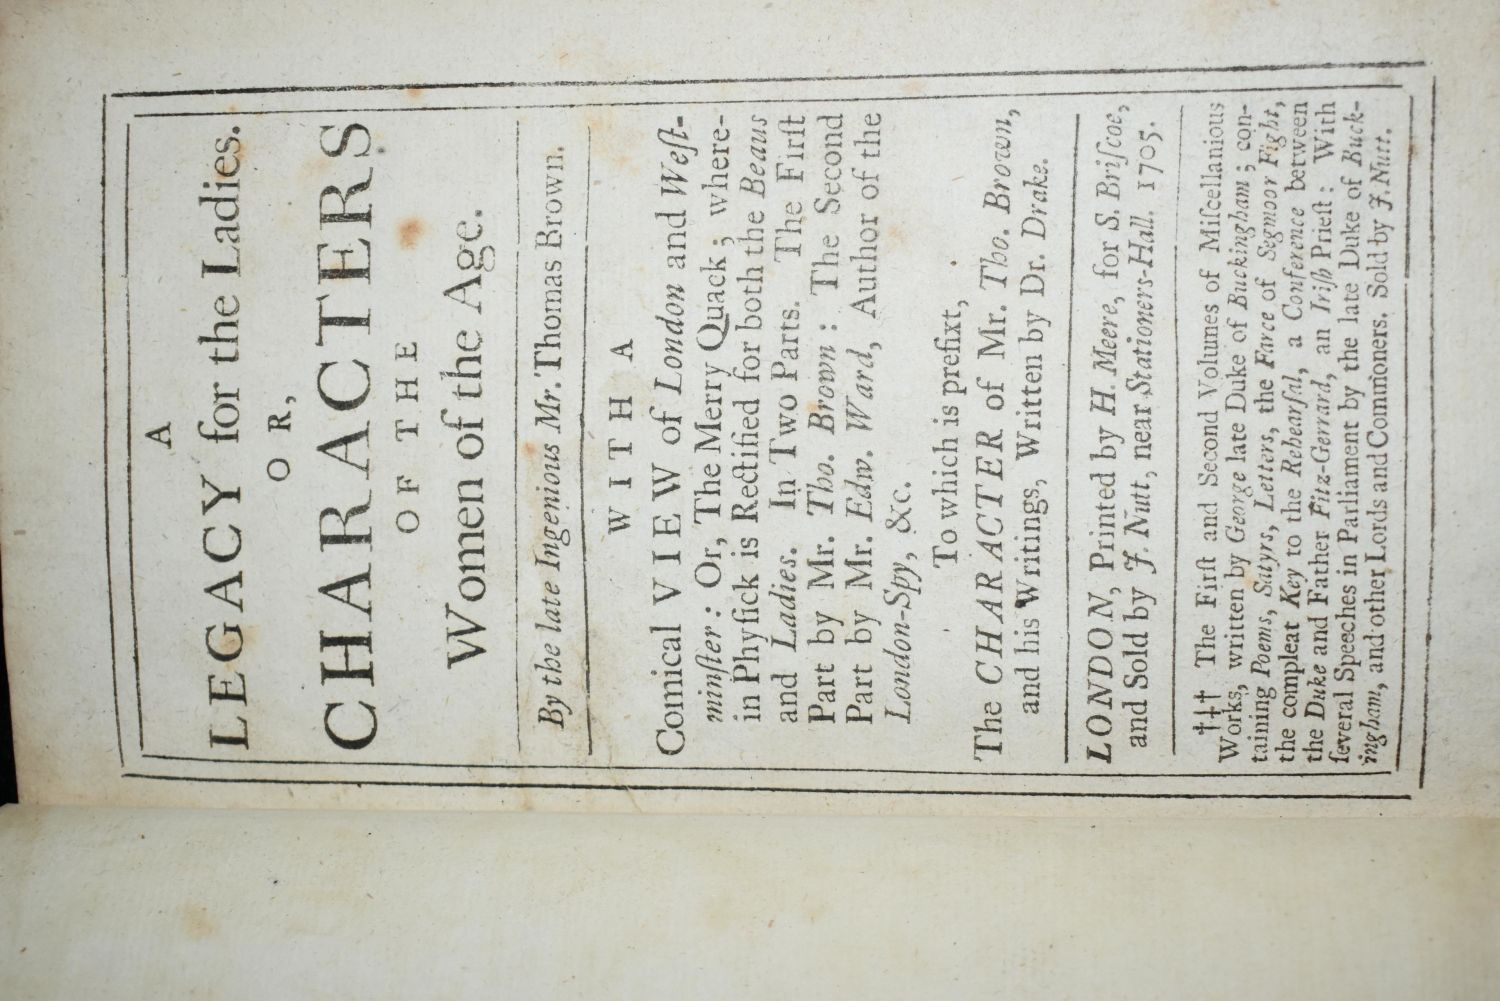 A
LEGACY for the Ladies.
OR,
CHARACTERS
OF THE
Women of the Age.
By the late Ingenious Mr. Thomas Brown.
WITH A
Comical VIEW of London and Weſt-
minſter: Or, The Merry Quack; where-
in Phyſick is Rectified for both the Beaus
and Ladies. In Two Parts. The Firſt
Part by Mr. Tho. Brown: The Second
Part by Mr. Edw. Ward, Author of the
London-Spy, &c.
To which is prefixt,
The CHARACTER of Mr. Tho. Brown,
and his Writings, Written by Dr. Drake.
LONDON, Printed by H. Meere, for S. Briſcoe,
and Sold by J. Nutt, near Stationers-Hall. 1705.
†‡† The Firſt and Second Volumes of Miſcellanious
Works, written by George late Duke of Buckingham; con-
taining Poems, Satyrs, Letters, the Farce of Segmoor Fight,
the compleat Key to the Rehearſal, a Conference between
the Duke and Father Fitz-Gerrard, an Iriſh Prieſt: With
ſeveral Speeches in Parliament by the late Duke of Buck-
ingham, and other Lords and Commoners. Sold by J. Nutt.